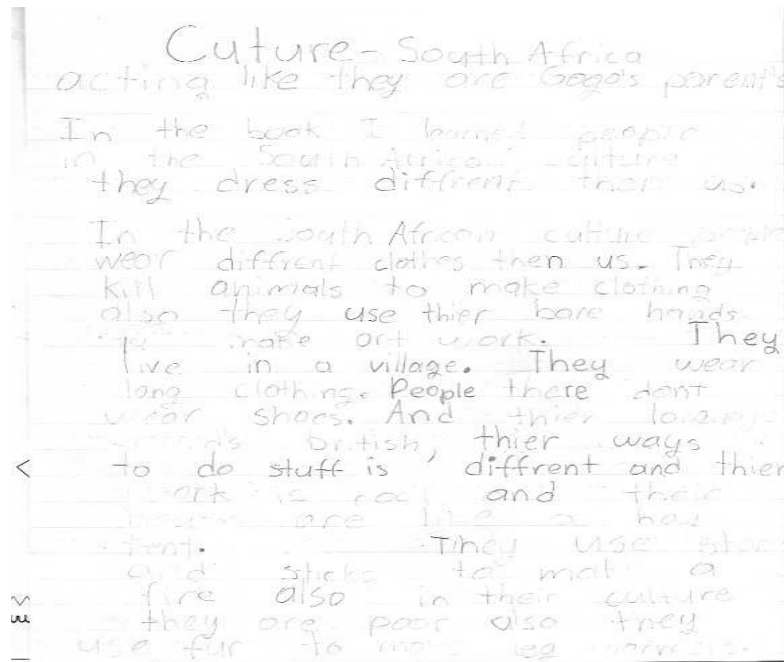 Cuture - South Africa
acting like they are Gogo's parent's
In the book I learned people
in the South African culture
they dress diffrent then us.
In the South African culture people
wear diffrent clothes then us. They
kill animals to make clothing
also they use thier bare hands
to make art work. They
live in a village. They wear
long clothing. People there dont
wear shoes. And thier
british, thier ways
to do stuff is diffrent and thier
is cool and their
are like a
tent. They use
and sticks to a
fire also in their culture
they are poor also they
use fur to leg